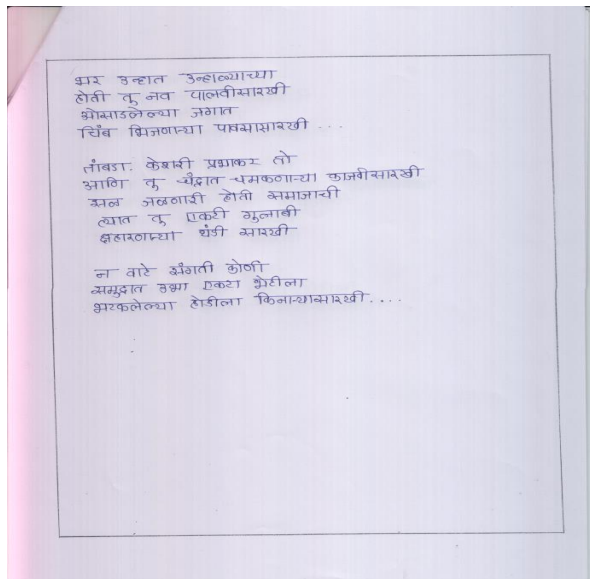 भर उन्हात उन्हाळ्याच्या
होती तु नव पालवीसारखी
ओसाडलेल्या जगात
चिंब भिजणाऱ्या पावसासारखी ...
तांबडा. केशरी प्रभाकर तो
आणि तु चंद्रात चमकणाऱ्या काजवीसारखी
सल जळणारी होती समाजाची
त्यात तु एकटी गुलाबी
शहारणाऱ्या थंडी सारखी
न वाटे संगती कोणी
समुद्रात उभा एकटा भेटीला
भटकलेल्या होडीला किनाऱ्यासारखी....